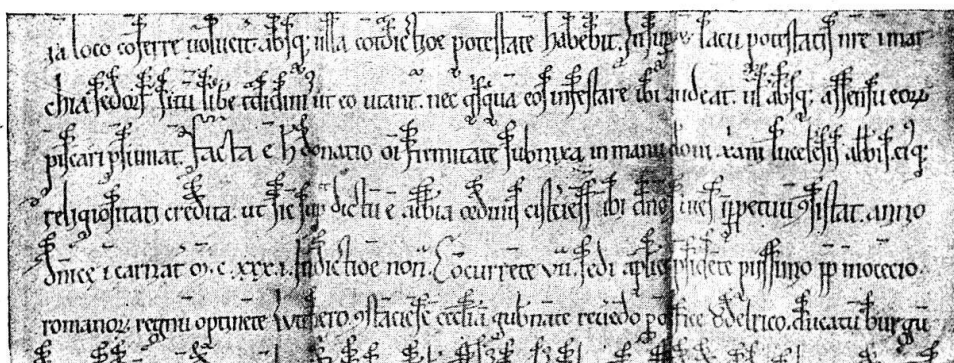 ra loco cōferre uoluerit. absq; ulla cōtdictiōe potestatē habebit. Insup & lacū potestatis nr̄e ī mar
chia sedorf sitū libe tdidim᷒ ut eo utant. nec qͥsquā eos infestare ibi audeat. ul absq; assensu eoꝝ
piscari p̄sumat. Facta ē h̄ donatio oī firmitate subnixa in manu dōni .x̄ani lucelēsis abbis. eiq;
religiositati credita. ut sic sup dictū ē abbia ordinis cisties ibi dn̄o īppetuū ꝯsistat. anno
dn̄ice īcarnat. m̄.c.xxx.i. Indictiōe non̄. Cōcurrēte vii. sedi aplice p̄sidēte piissimo pp̄ inocēcio.
romanoꝝ. regnū optinēte luthero. ꝯstāciēsē eccl̄iā gubnāte reuēdo pōtifice Vodelrico. ducatū burgū